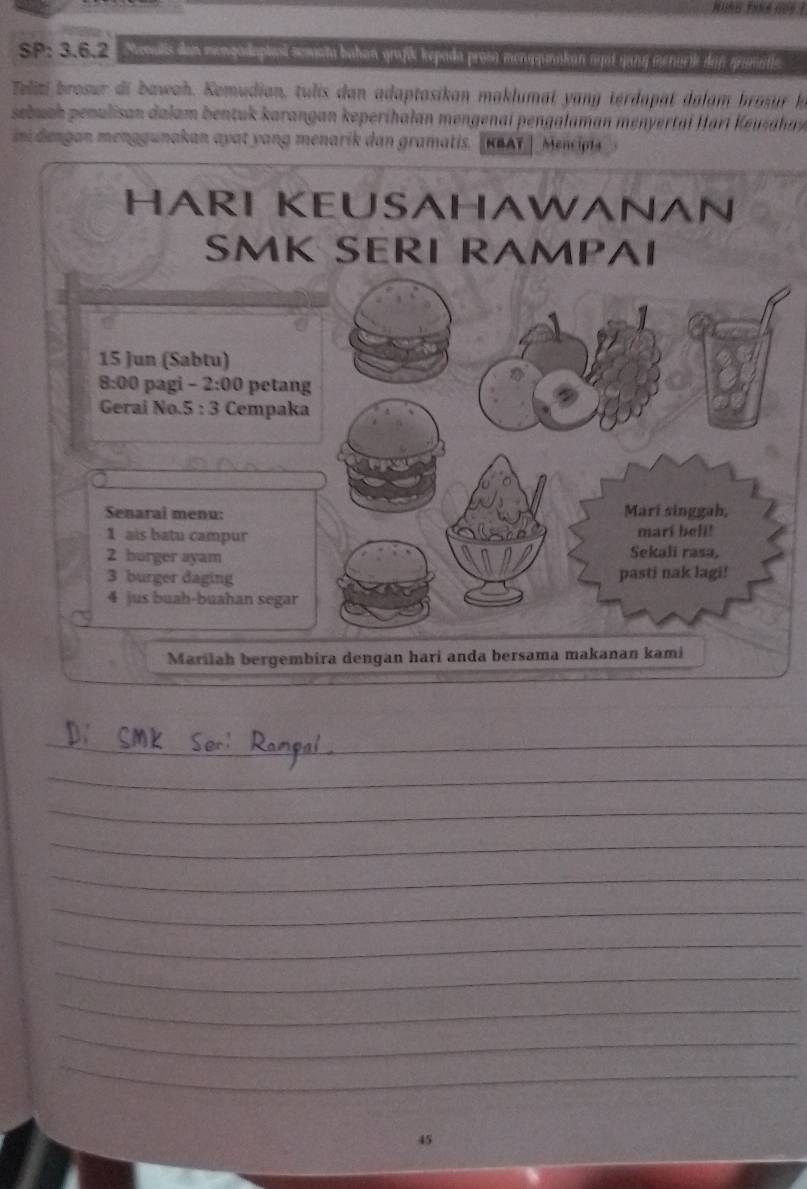 SP: 3.6.2 Menulis dan mengadaptasi sesuatu bahan grafik kepada prosa menggunakan ayat yang menarik dan gramatis
Teliti brosur di bawah. Kemudian, tulis dan adaptasikan maklumat yang terdapat dalam brosur
sebuah penulisan dalam bentuk karangan keperihalan mengenai pengalaman menyertai Hari
ini dengan menggunakan ayat yang menarik dan gramatis. KBAT Mencipta
HARI KEUSAHAWANAN
SMK SERI RAMPAI
15 Jun (Sabtu)
8:00 pagi – 2:00 petang
Gerai No.5 : 3 Cempaka
Senarai menu:
1 ais batu campur
2 burger ayam
3 burger daging
4 jus buah-buahan segar
Mari singgah,
mari beli!
Sekali rasa,
pasti nak lagi!
Marilah bergembira dengan hari anda bersama makanan kami
Di SMK Seri Rampai.
45